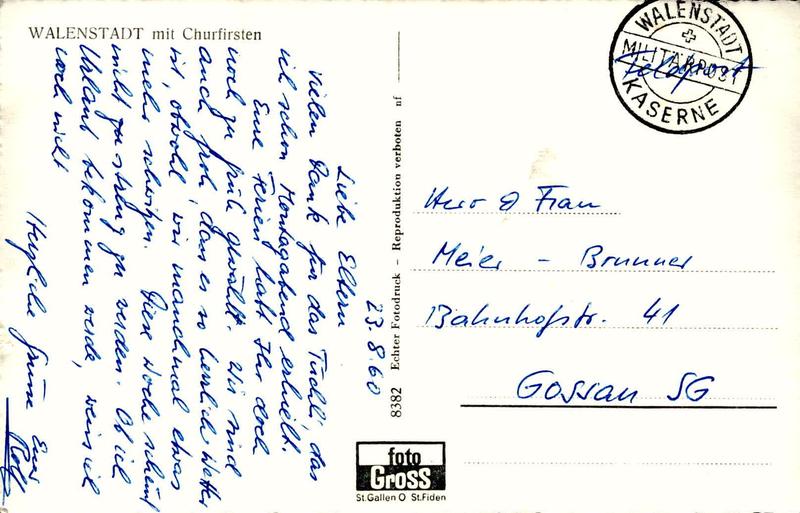 WALENSTADT mit Churfirsten
23.8.60
Liebe Eltern
Vielen Dank für das Fischli, das
ich schon Montagabend erhielt.
Eure Ferien habt Ihr doch
noch zu früh gewählt. Wir sind
auch froh, dass es so herrlich Wetter
ist, obwohl wir manchmal etwas
mehr schwitzen. Diese Woche scheint
nicht zu streng zu werden. Ob ich
Urlaub bekommen werde, weiss ich
noch nicht
Herzliche Grüsse Euer
Rolf
8382 Echter Fotodruck - Reproduktion verboten nf
foto
Gross
St.Gallen O St.Fiden
WALENSTADT
MILITÄRPOST
KASERNE
Feldpost
Herr & Frau
Meier - Brunner
Bahnhofstr. 41
Gossau SG